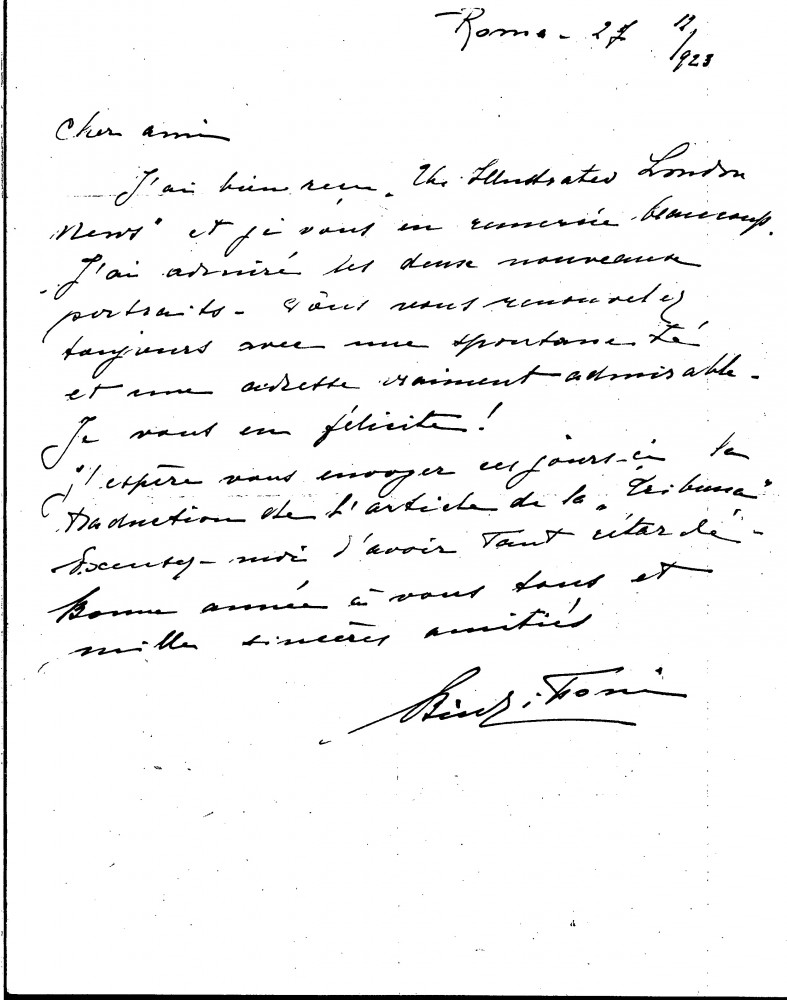 Roma - 27 12/923
Cher ami
J'ai bien reçu „The Illustrated London
News" et je vous en remercie beaucoup.
J'ai admiré les deux nouveaux
portraits - Vous vous renouvelez
toujours avec une spontaneité
et une adresse vraiment admirable -
Je vous en félicite!
J'espère vous envoyer ces jours-ci la
traduction de l'article de la „Tribuna"
Excusez-moi d'avoir tant retardé -
Bonne année à vous tous et
mille sincères amitiés